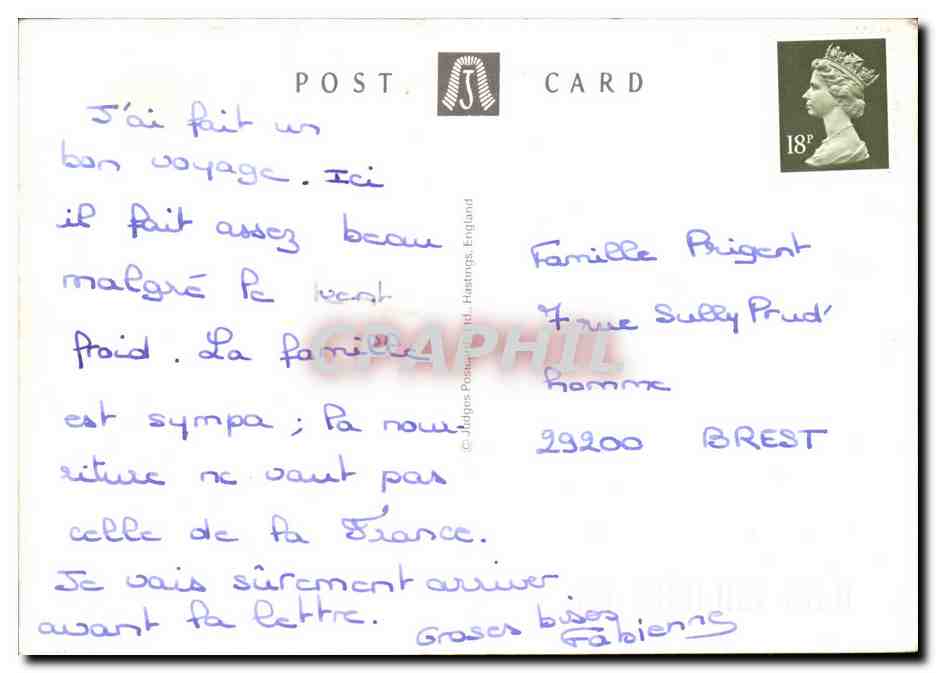 POST CARD
18P
J'ai fait un
bon voyage. Ici
il fait assez beau
malgré le vent
froid. La famille
est sympa ; la nour-
riture ne vaut pas
celle de la France.
Je vais sûrement arriver
avant la lettre.
Groses bises
Fabienne
© Judges Postcards Ltd., Hastings, England
Famille Prigent
7 rue Sully Prud'
homme
29200 BREST
CPAPHIL